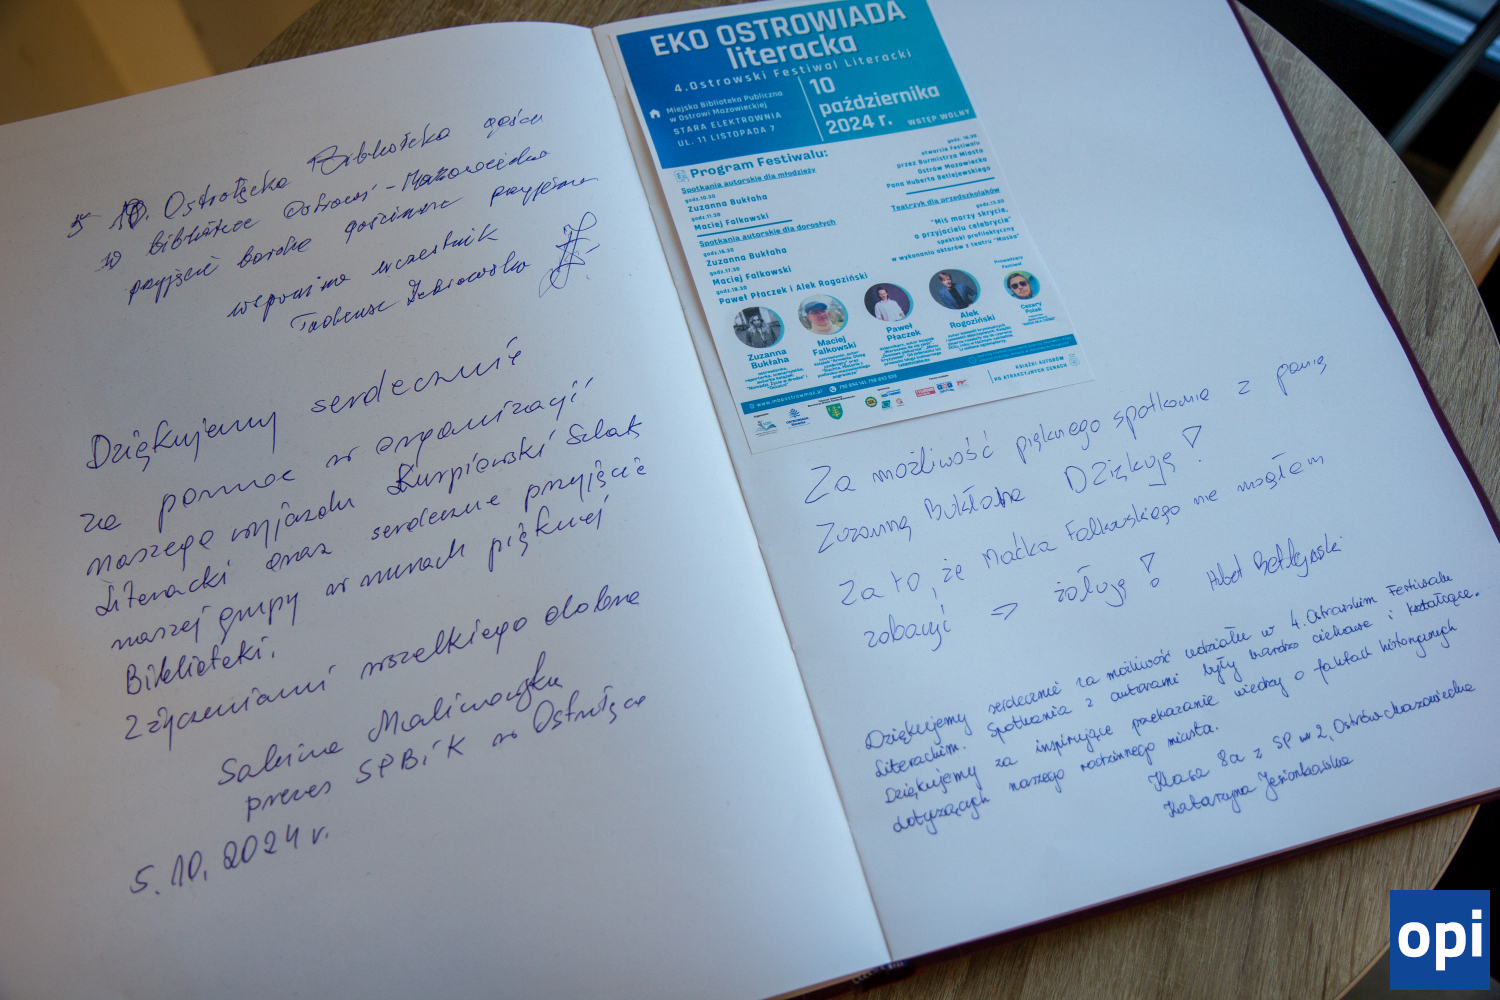 5 10. Ostrołęcka Biblioteka gości
w bibliotece Ostrowi-Mazowiecka
przyjęcie bardzo gościnne
wspomina uczestnik
Tadeusz
Dziękujemy serdecznie
za pomoc w organizacji
naszego wyjazdu Kurpiowski Szlak
Literacki oraz serdeczne przyjęcie
naszej grupy w murach pięknej
Biblioteki.
Z życzeniami wszelkiego dobra
Sabina Malinowska
prezes SPBiK w Ostrołęce
5.10.2024 r.
EKO OSTROWIADA
literacka
4.Ostrowski Festiwal Literacki
Miejska Biblioteka Publiczna
w Ostrowi Mazowieckiej
STARA ELEKTROWNIA
UL. 11 LISTOPADA 7
10
października
2024 r.
WSTĘP WOLNY
Program Festiwalu:
Spotkania autorskie dla młodzieży
godz.10.30
Zuzanna Bukłaha
godz.11.30
Maciej Falkowski
Spotkania autorskie dla dorosłych
godz.16.30
Zuzanna Bukłaha
godz.17.30
Maciej Falkowski
godz.18.30
Paweł Płaczek i Alek Rogoziński
godz. 16.30
otwarcie Festiwalu
przez Burmistrza Miasta
Ostrów Mazowiecka
Pana Huberta Betlejewskiego
Teatrzyk dla przedszkolaków
"Miś marzy skrycie,
o przyjacielu celebrycie"
spektakl profilaktyczny
w wykonaniu aktorów z teatru "Maska"
Zuzanna
Bukłaha
Maciej
Falkowski
Paweł
Płaczek
Alek
Rogoziński
Prowadzący
Festiwal
Cezary
Polak
www.mbpostrowmaz.pl
KSIĄŻKI AUTORÓW
PO ATRAKCYJNYCH CENACH
Za możliwość pięknego spotkania z panią
Zuzanną Bukłaha Dziękuję!
Za to, że Maćka Falkowskiego nie mogłem
zobaczyć => żałuję! Hubert Betlejewski
Dziękujemy serdecznie za możliwość udziału w 4. Ostrowskim Festiwalu
Literackim. Spotkania z autorami były bardzo ciekawe i kształcące.
Dziękujemy za inspirujące przekazanie wiedzy o faktach historycznych
dotyczących naszego rodzinnego miasta.
Klasa 8a z SP nr 2, Ostrów Mazowiecka
Katarzyna Jesionkowska
opi